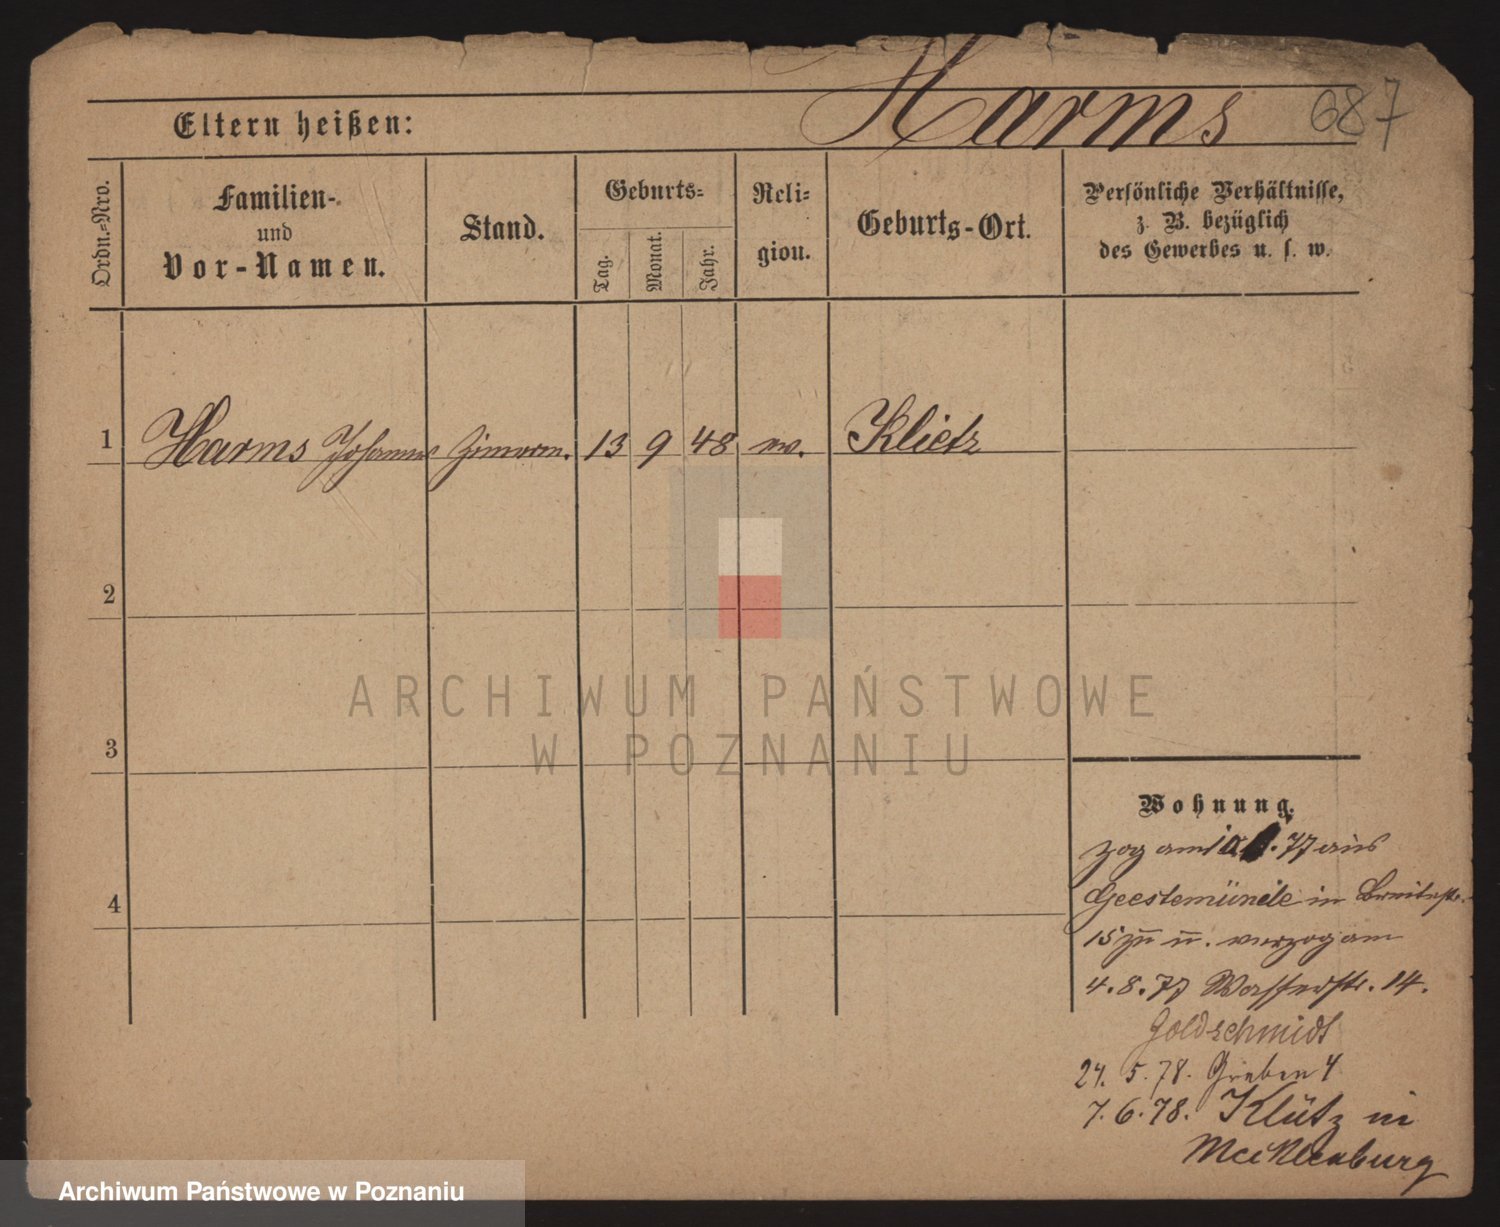 Harms 687
Eltern heißen:
Ordn.-Nro.
Familien-
und
Vor-Namen.
Stand.
Geburts-
Tag.
Monat.
Jahr.
Reli-
gion.
Geburts-Ort.
Persönliche Verhältnisse,
z. B. bezüglich
des Gewerbes u. s. w.
1 Harms Johannes Zimmerm. 13 9 48 ev. Klietz
2
3
4
Wohnung.
zog am 77 aus
Geestemünde in Breitestr.
15 zu u. verzog am
4.8.77 Wasserstr. 14.
Goldschmidt
24. 5. 78. Graben 4
7.6.78. Klütz in
Mecklenburg
ARCHIWUM PAŃSTWOWE
W POZNANIU
Archiwum Państwowe w Poznaniu